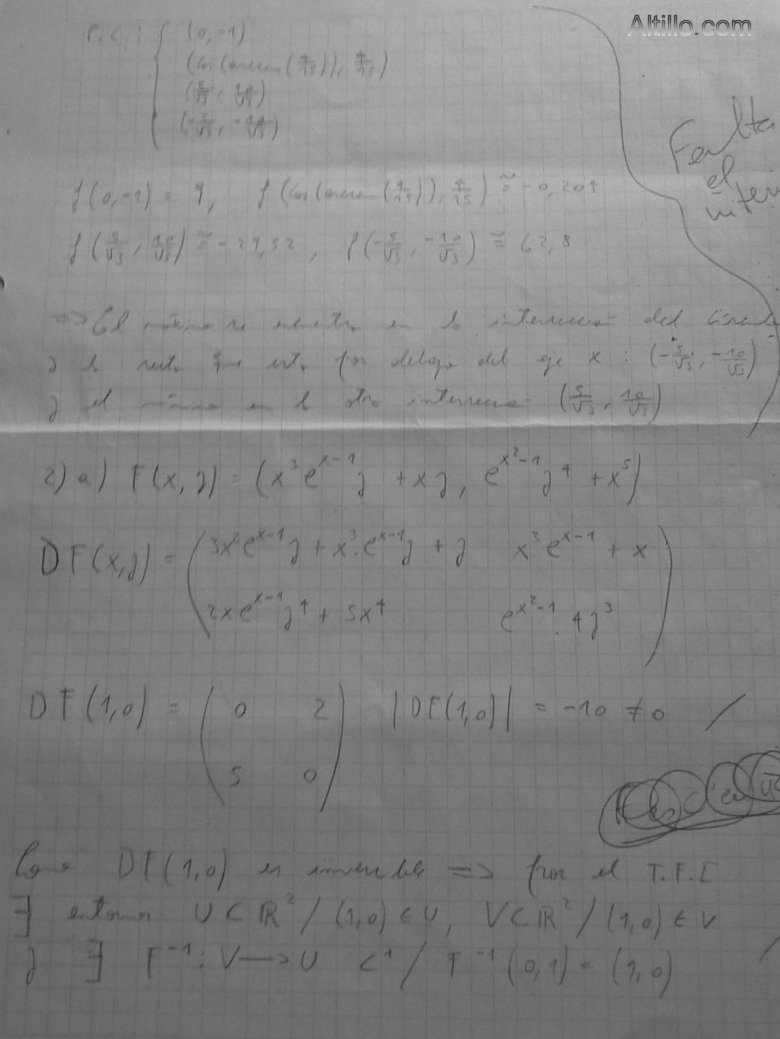 Altillo.com
P.C.: { (0,-1)
(cos(arcsen(4/15)), 4/15)
(5/√3, 10/√3)
(-5/√3, -10/√3)
Falta
el
f(0,-1) = 9, f(cos(arcsen(4/15)), 4/15) ≅ -0,209
f(5/√3, 10/√3) ≅ -29,52, f(-5/√3, -10/√3) ≅ 62,8
=> El máximo se encuentra en la interseccion del círculo
y la recta que esta por debajo del eje x : (-5/√3, -10/√3)
y el mínimo en la otra interseccion (5/√3, 10/√3)
2) a) F(x,y) = (x³e^(x-1)y + xy, e^(x²-1)y⁴ + x⁵)
DF(x,y) = ( 3x²e^(x-1)y + x³.e^(x-1)y + y x³e^(x-1) + x
2xe^(x-1)y⁴ + 5x⁴ e^(x²-1).4y³ )
DF(1,0) = ( 0 2 |DF(1,0)| = -10 ≠ 0 /
5 0 )
F es C¹ en
Como DF(1,0) es inversible => por el T.F.I
∃ entornos U⊂ℝ² / (1,0)∈U, V⊂ℝ² / (1,0)∈V
y ∃ F⁻¹: V→U C¹ / F⁻¹(0,1) = (1,0)